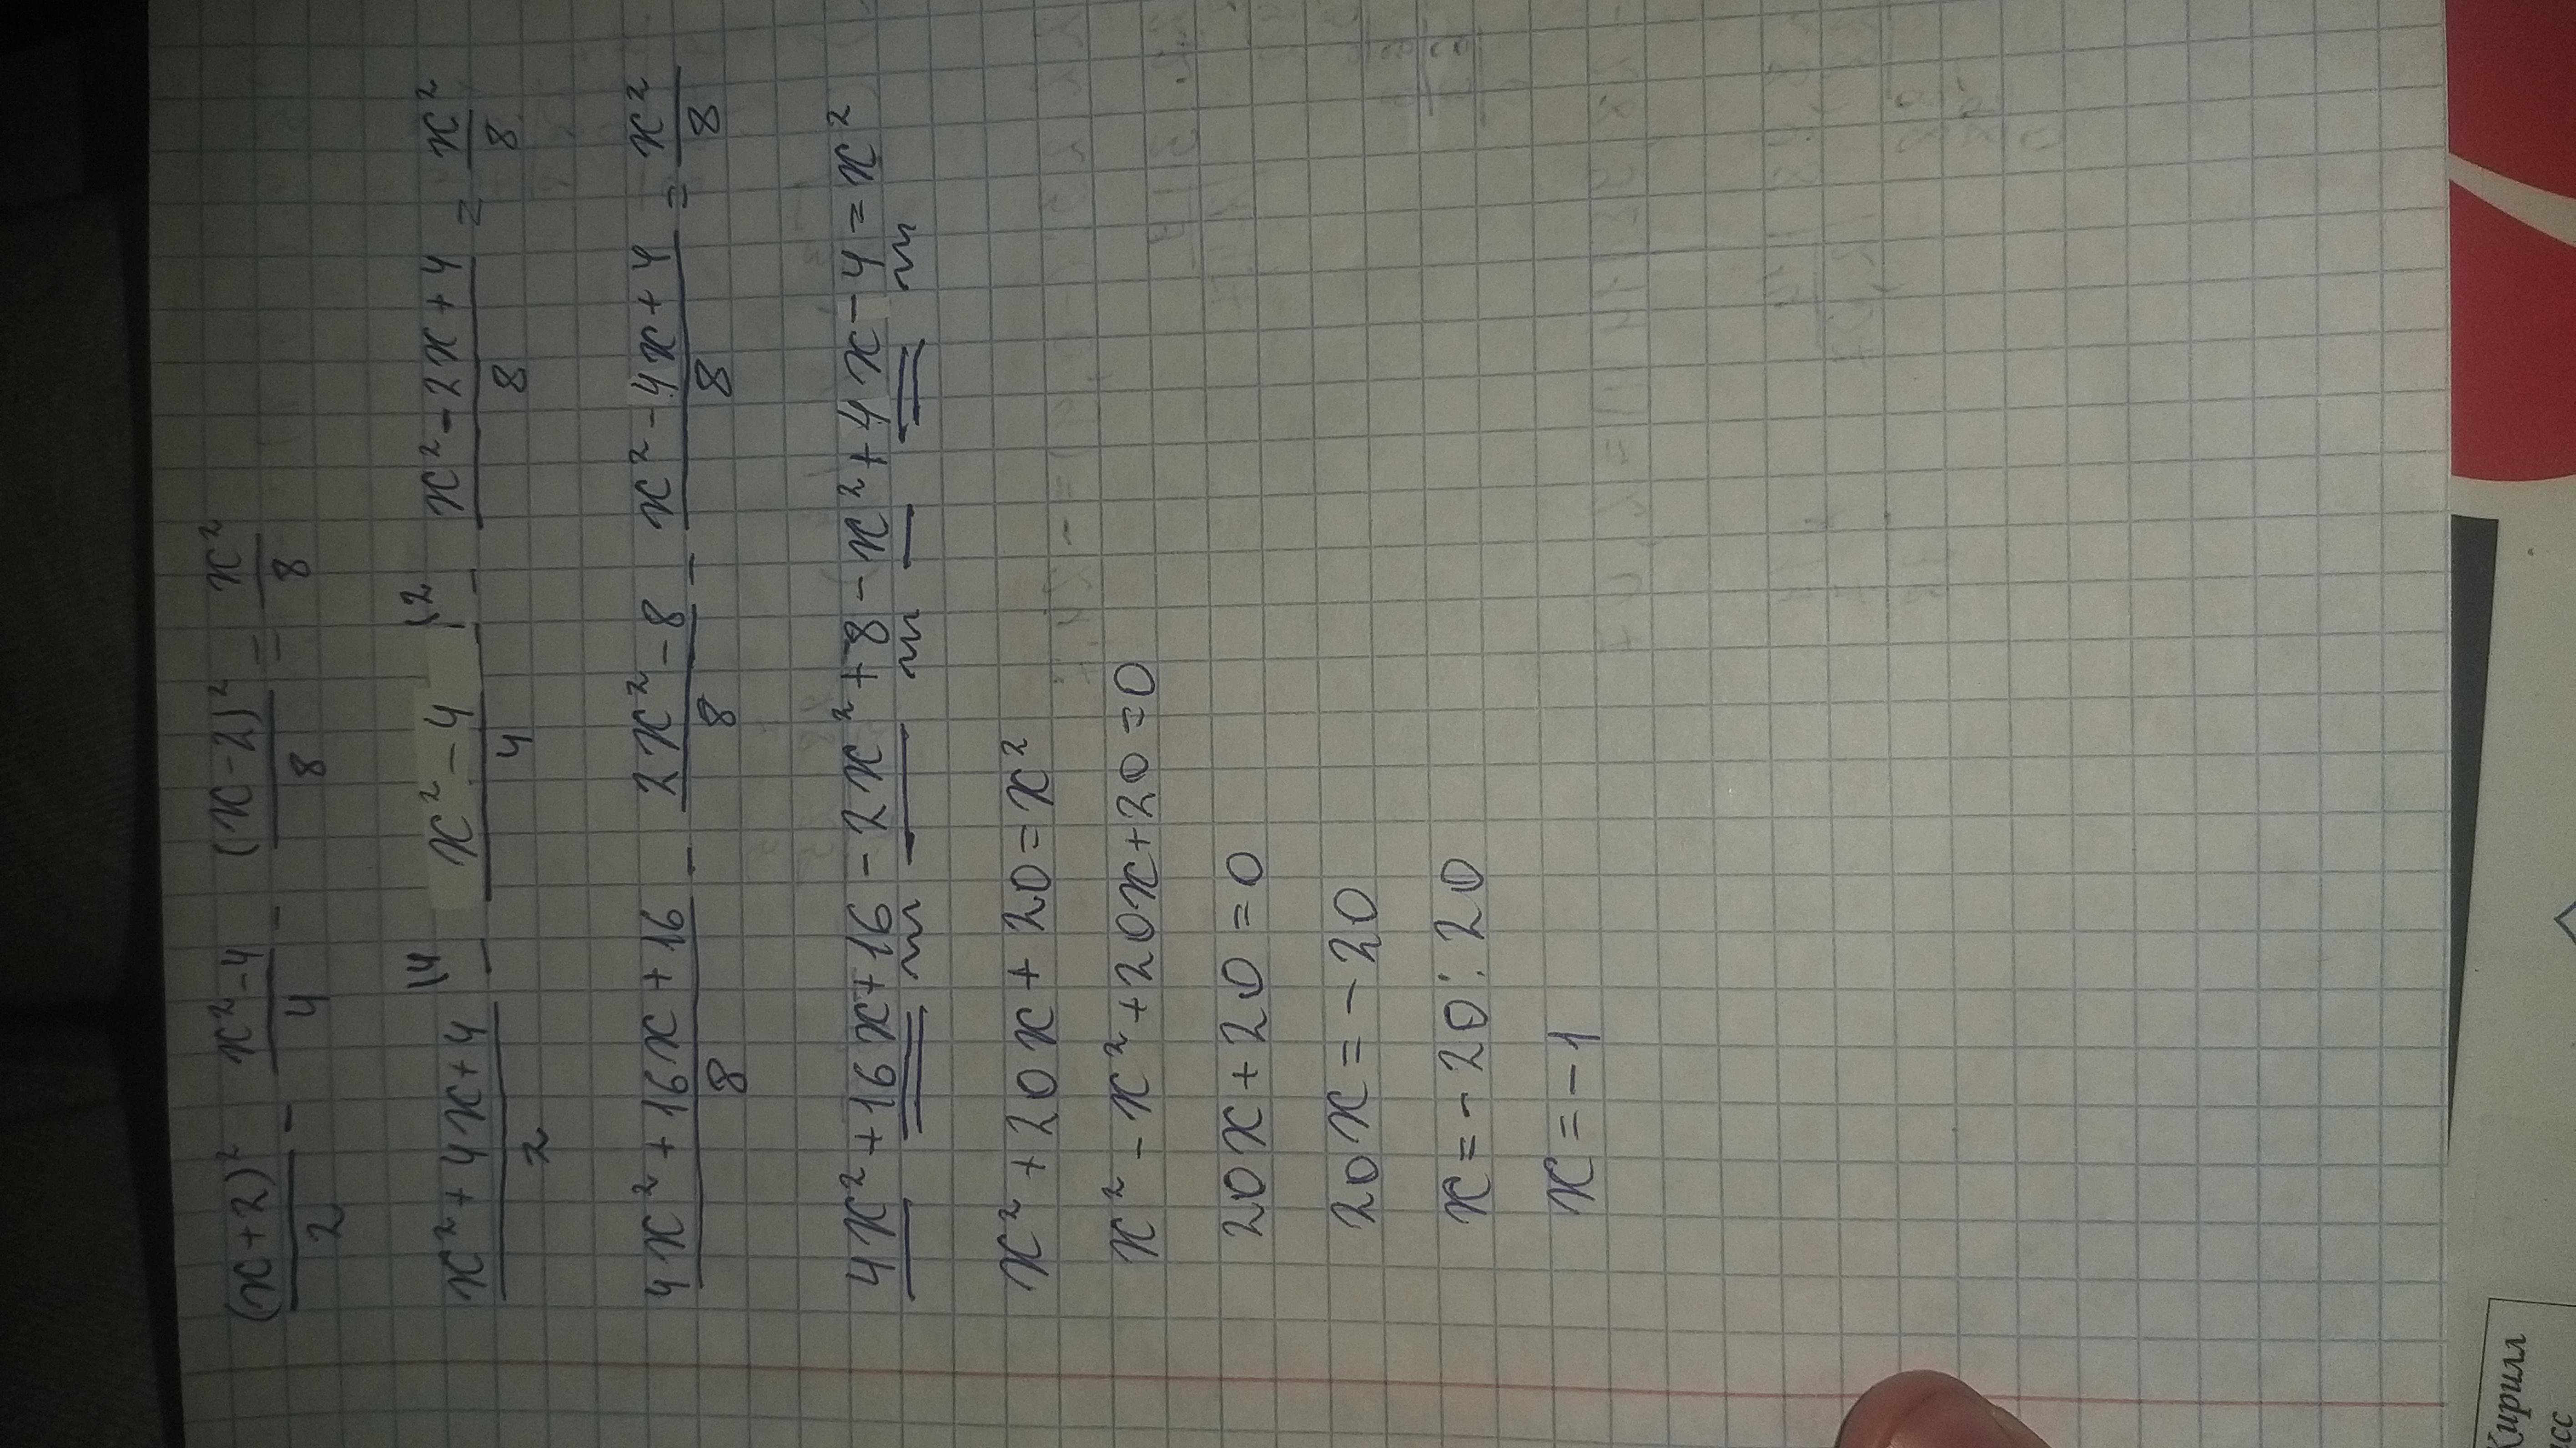 (x+2)²/2 - x²-4/4 - (x-2)²/8 = x²/8
x²+4x+4/2 \4 - x²-4/4 \2 - x²-2x+4/8 = x²/8
4x²+16x+16/8 - 2x²-8/8 - x²-4x+4/8 = x²/8
4x²+16x+16-2x²+8-x²+4x-4=x²
x²+20x+20=x²
x²-x²+20x+20=0
20x+20=0
20x=-20
x=-20:20
x=-1
Кирилл
сс